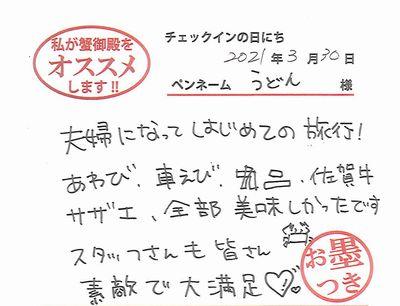 私が蟹御殿を
オススメ
します!!
チェックインの日にち
2021年3月30日
ペンネーム うどん 様
夫婦になってはじめての旅行!
あわび、車えび、、佐賀牛
サザエ、全部美味しかったです
スタッフさんも皆さん
素敵で大満足
お墨つき